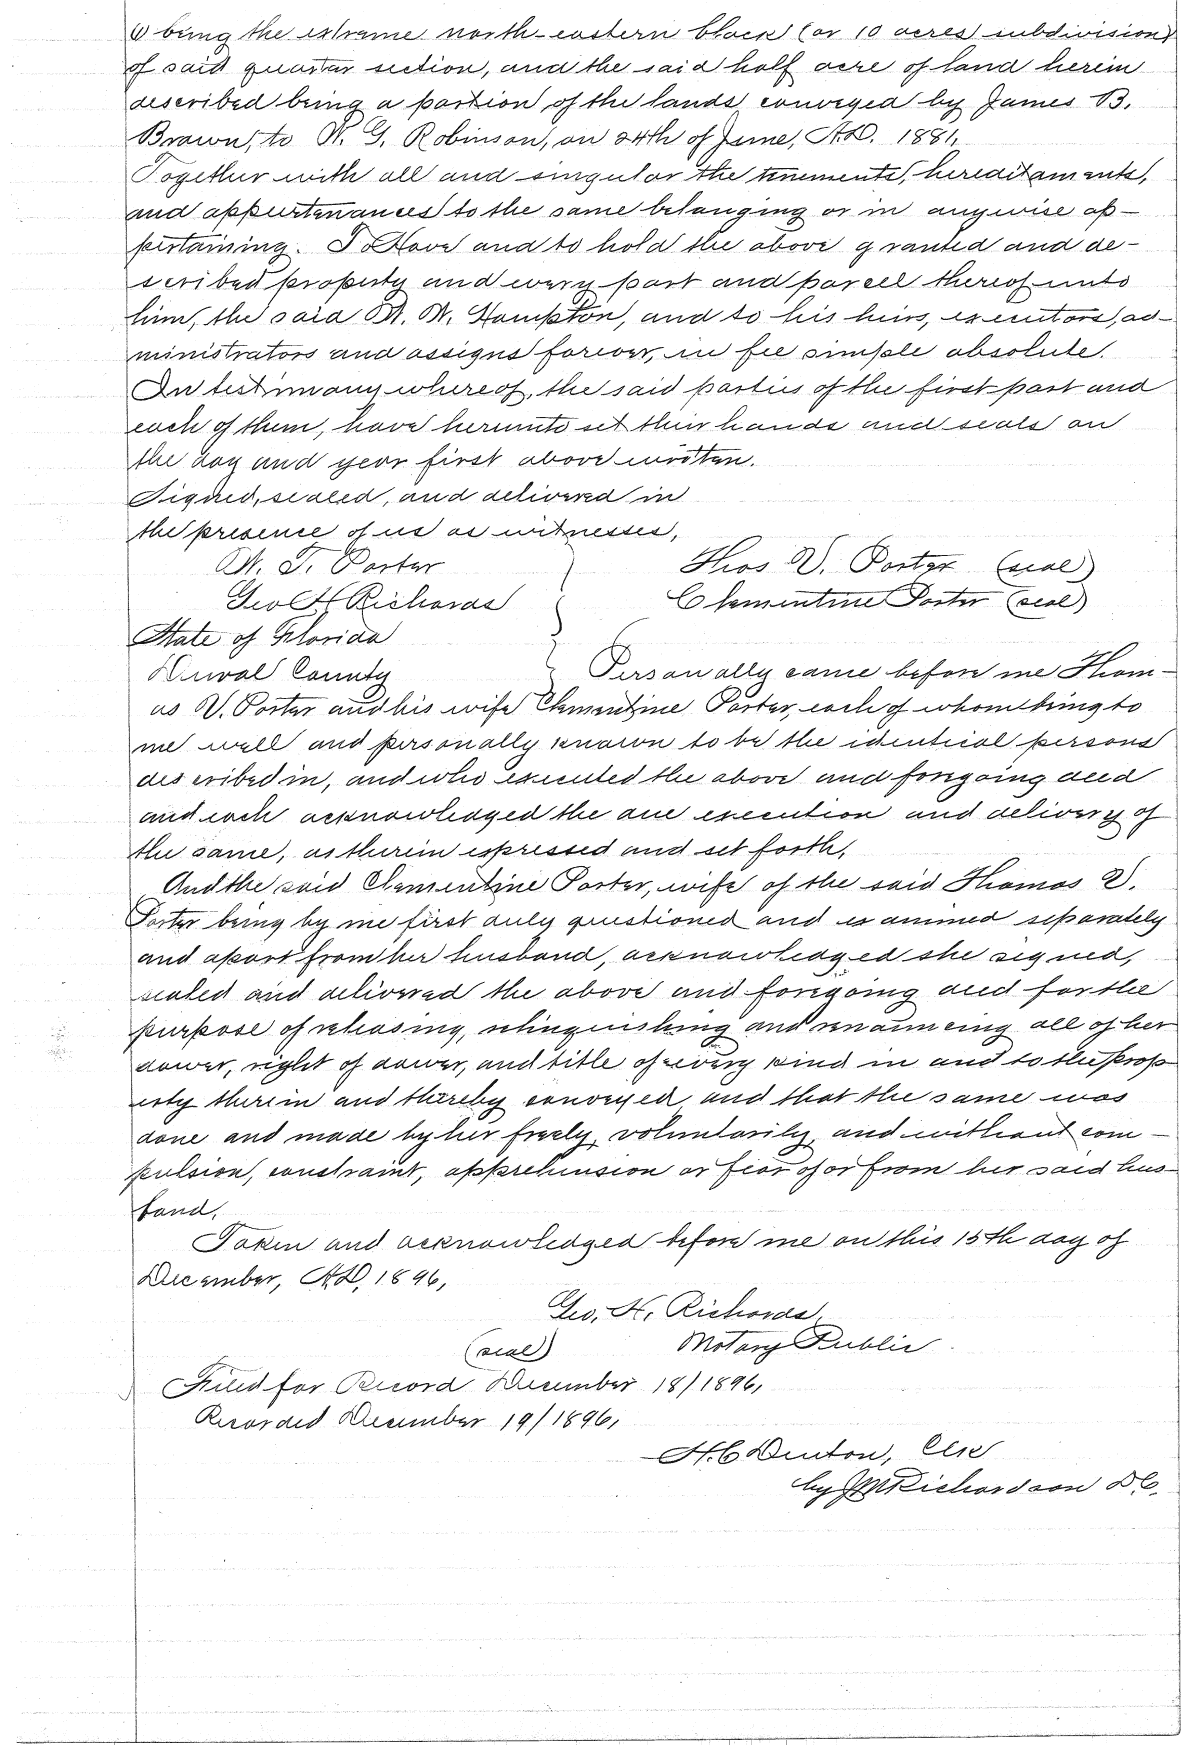 1) being the extreme north-eastern block (or 10 acres subdivision)
of said quarter section, and the said half acre of land herein
described being a portion of the lands conveyed by James B.
Brown, to W. G. Robinson, on 24th of June, A.D. 1881,
Together with all and singular the tenements, hereditaments,
and appurtenances to the same belonging or in anywise ap-
pertaining. To Have and to hold the above granted and de-
scribed property and every part and parcell thereof unto
him, the said W. W. Hampton, and to his heirs, executors, ad-
ministrators and assigns forever, in fee simple absolute.
In testimony whereof, the said parties of the first part and
each of them, have hereunto set their hands and seals on
the day and year first above written.
Signed, sealed, and delivered in
the presence of us as witnesses,
W. T. Porter Thos V. Porter (seal)
Geo H Richards Clementine Porter (seal)
State of Florida
Duval County Personally came before me Thom-
as V. Porter and his wife Clementine Porter, each of whom being to
me well and personally known to be the identical persons
described in, and who executed the above and foregoing deed
and each acknowledged the due execution and delivery of
the same, as therein expressed and set forth,
And the said Clementine Porter, wife of the said Thomas V.
Porter being by me first duly questioned and examined separately
and apart from her husband, acknowledged she signed,
sealed and delivered the above and foregoing deed for the
purpose of releasing, relinquishing and renouncing all of her
dower, right of dower, and title of every kind in and to the prop
erty therein and thereby conveyed and that the same was
done and made by her freely, voluntarily, and without com-
pulsion, constraint, apprehension or fear of or from her said hus-
band,
Taken and acknowledged before me on this 15th day of
December, A.D, 1896,
Geo, H, Richards,
(seal) Notary Public
Filed for Record December 18/1896,
Recorded December 19/1896,
H.C Denton, Clk
by JM Richardson D.C.